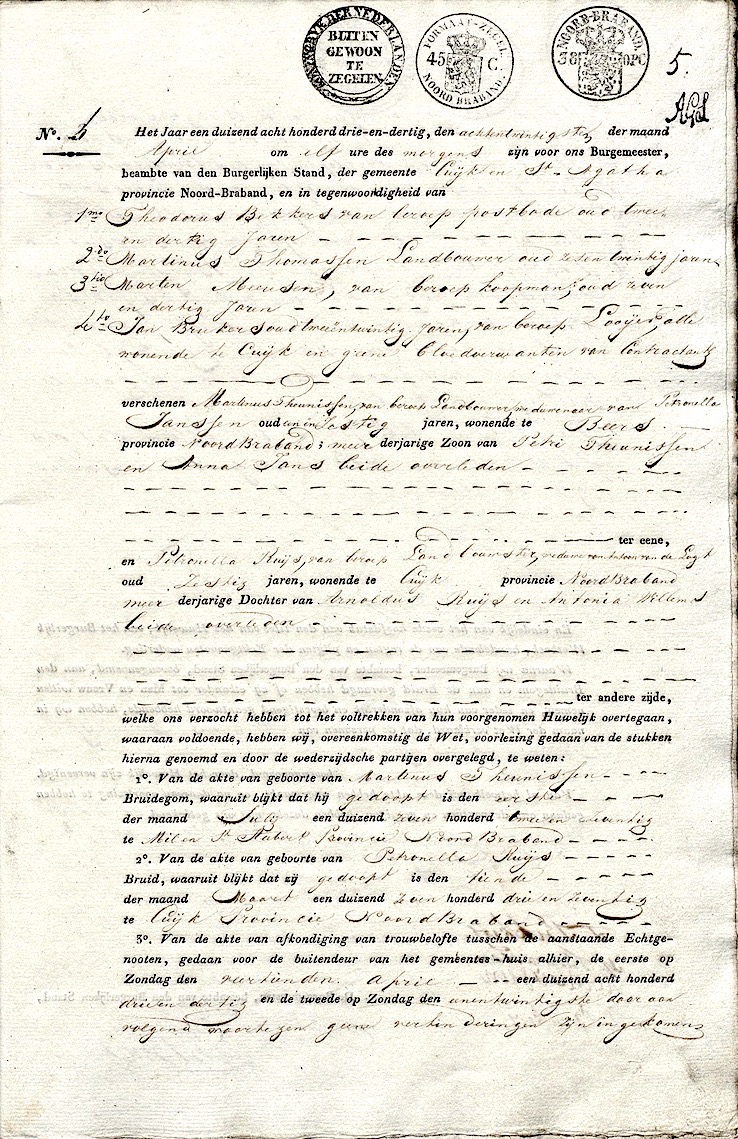 KONINGRYK DER NEDERLANDEN
BUITEN
GEWOON
TE
ZEGELEN
FORMAAT-ZEGEL.
45 C.
NOORD BRABAND.
NOORD-BRABAND.
38 OPC
5.
No. 4
Het Jaar een duizend acht honderd drie-en-dertig, den achtentwintigsten der maand
April om elf ure des morgens zijn voor ons Burgemeester,
beambte van den Burgerlijken Stand, der gemeente Cuijk en St. Agatha
provincie Noord-Braband, en in tegenwoordigheid van
1mo Theodorus Bekkers van beroep postbode oud twee
en dertig Jaren
2do Martinus Thomassen Landbouwer oud zesentwintig jaren
3tio Marten Meeusen, van beroep koopman, oud zeven
en dertig Jaren
4to Jan Brukers oud tweeentwintig Jaren, van beroep Looyer, alle
wonende te Cuijk en geene bloedverwanten van Contractante
verschenen Martinus Theunissen, van beroep Landbouwer, weduwenaar van Petronella
Janssen oud een en Sestig jaren, wonende te Beers
provincie Noord Braband; meer derjarige Zoon van Petri Theunissen
en Anna Jans beide overleden
ter eene,
en Petronella Ruijs, van beroep Landbouwster, weduwe van Antoon van de Logt
oud Zestig jaren, wonende te Cuijk provincie Noord Braband
meer derjarige Dochter van Arnoldus Ruijs en Antonia Willems
beide overleden
ter andere zijde,
welke ons verzocht hebben tot het voltrekken van hun voorgenomen Huwelijk overtegaan,
waaraan voldoende, hebben wij, overeenkomstig de Wet, voorlezing gedaan van de stukken
hierna genoemd en door de wederzijdsche partijen overgelegd, te weten:
1o. Van de akte van geboorte van Martinus Theunissen
Bruidegom, waaruit blijkt dat hij gedoopt is den eerste
der maand Julij een duizend zeven honderd twee en zeventig
te Mil en St Hubert Provincie Noord Braband
2o. Van de akte van geboorte van Petronella Ruijs
Bruid, waaruit blijkt dat zij gedoopt is den tiende
der maand Maart een duizend zeven honderd drie en zeventig
te Cuijk Provincie Noord Braband
3o. Van de akte van afkondiging van trouwbelofte tusschen de aanstaande Echtge-
nooten, gedaan voor de buitendeur van het gemeentes-huis alhier, de eerste op
Zondag den veertienden April een duizend acht honderd
drie en dertig en de tweede op Zondag den eenentwintigste daar aan
volgend waartegen geene verhinderingen zijn ingekomen